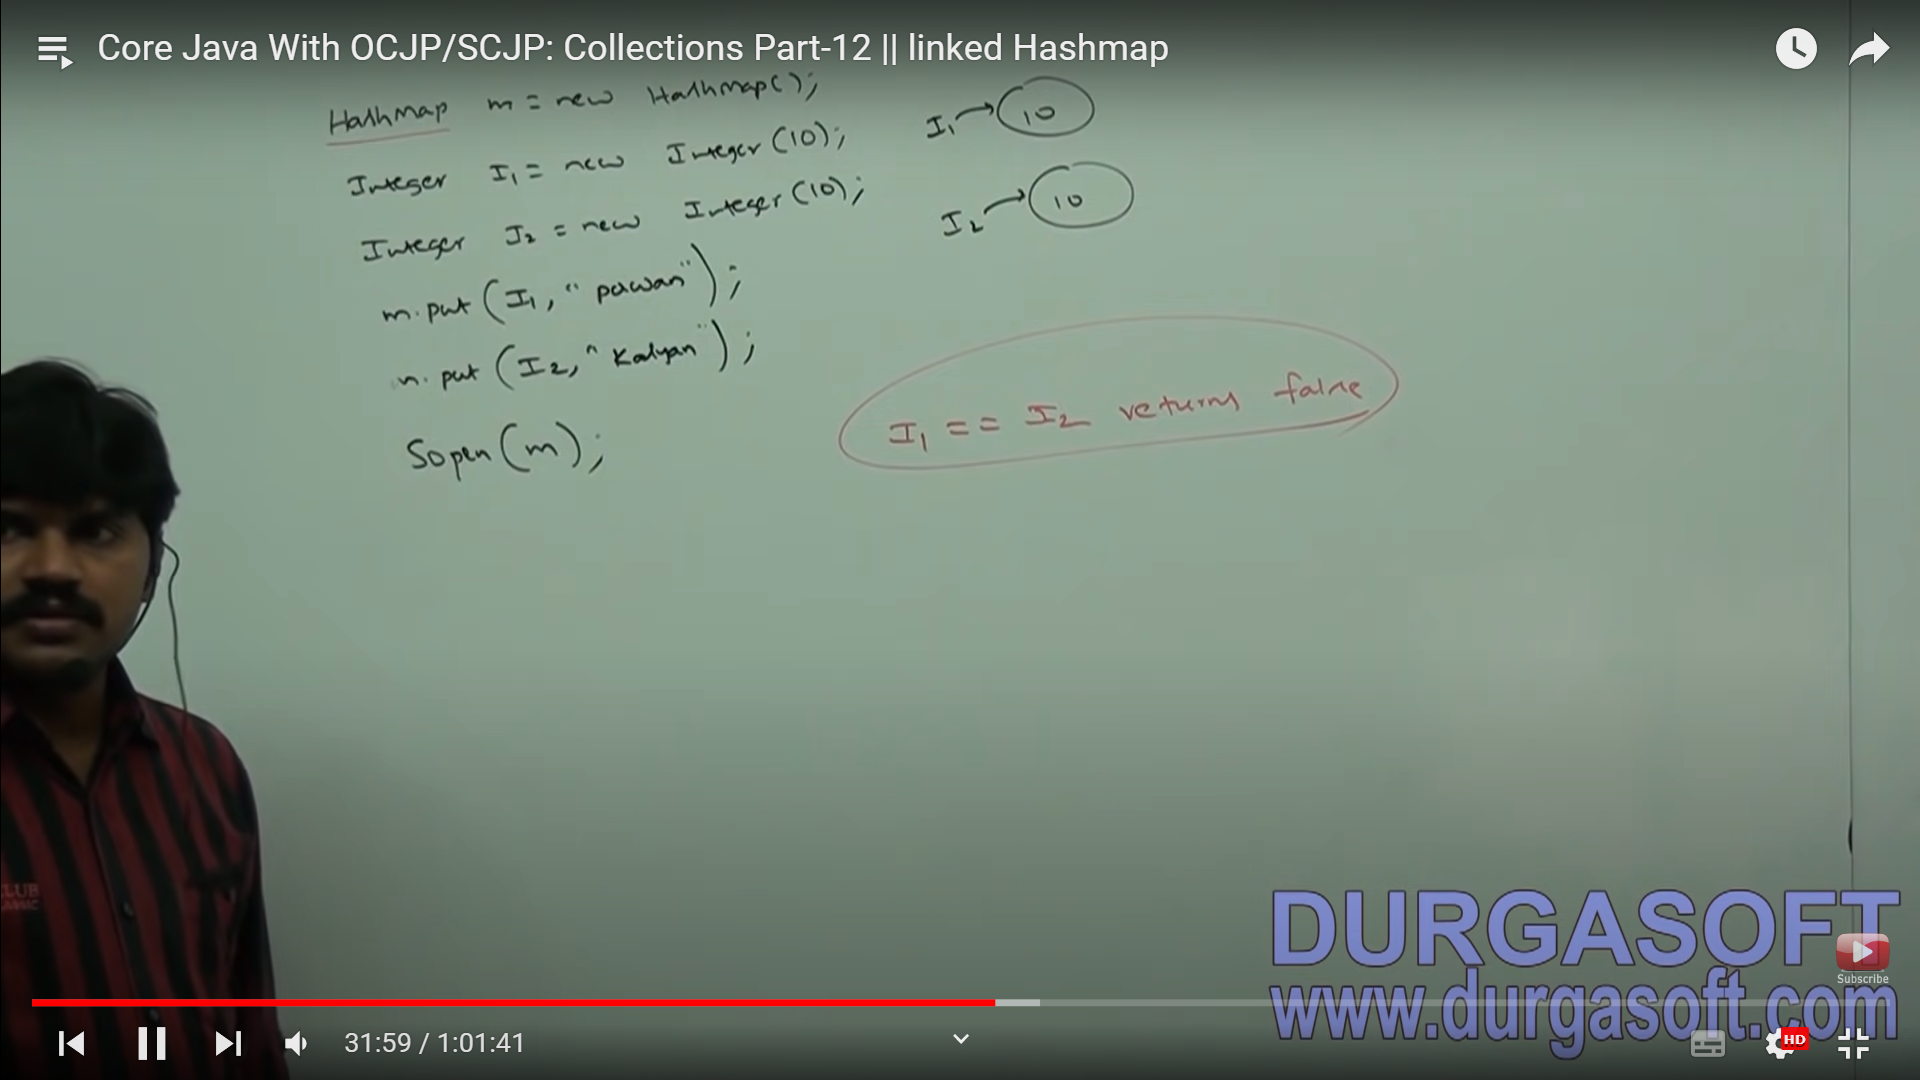 Core Java With OCJP/SCJP: Collections Part-12 || linked Hashmap
HashMap m = new HashMap();
Integer I1 = new Integer(10);
Integer I2 = new Integer(10);
m.put(I1, "pawan");
m.put(I2, "Kalyan");
Sopln(m);
I1 → 10
I2 → 10
I1 == I2 returns false
CLUB
DURGASOFT
www.durgasoft.com
Subscribe
31:59 / 1:01:41
HD